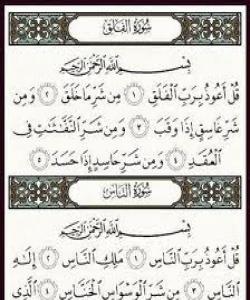 سُورَةُ الفَلَقِ
بِسْمِ اللَّهِ الرَّحْمَٰنِ الرَّحِيمِ
قُلْ أَعُوذُ بِرَبِّ الْفَلَقِ ١ مِن شَرِّ مَا خَلَقَ ٢ وَمِن
شَرِّ غَاسِقٍ إِذَا وَقَبَ ٣ وَمِن شَرِّ النَّفَّٰثَٰتِ فِي
الْعُقَدِ ٤ وَمِن شَرِّ حَاسِدٍ إِذَا حَسَدَ ٥
سُورَةُ النَّاسِ
بِسْمِ اللَّهِ الرَّحْمَٰنِ الرَّحِيمِ
قُلْ أَعُوذُ بِرَبِّ النَّاسِ ١ مَلِكِ النَّاسِ ٢ إِلَٰهِ
النَّاسِ ٣ مِن شَرِّ الْوَسْوَاسِ الْخَنَّاسِ ٤ الَّذِي